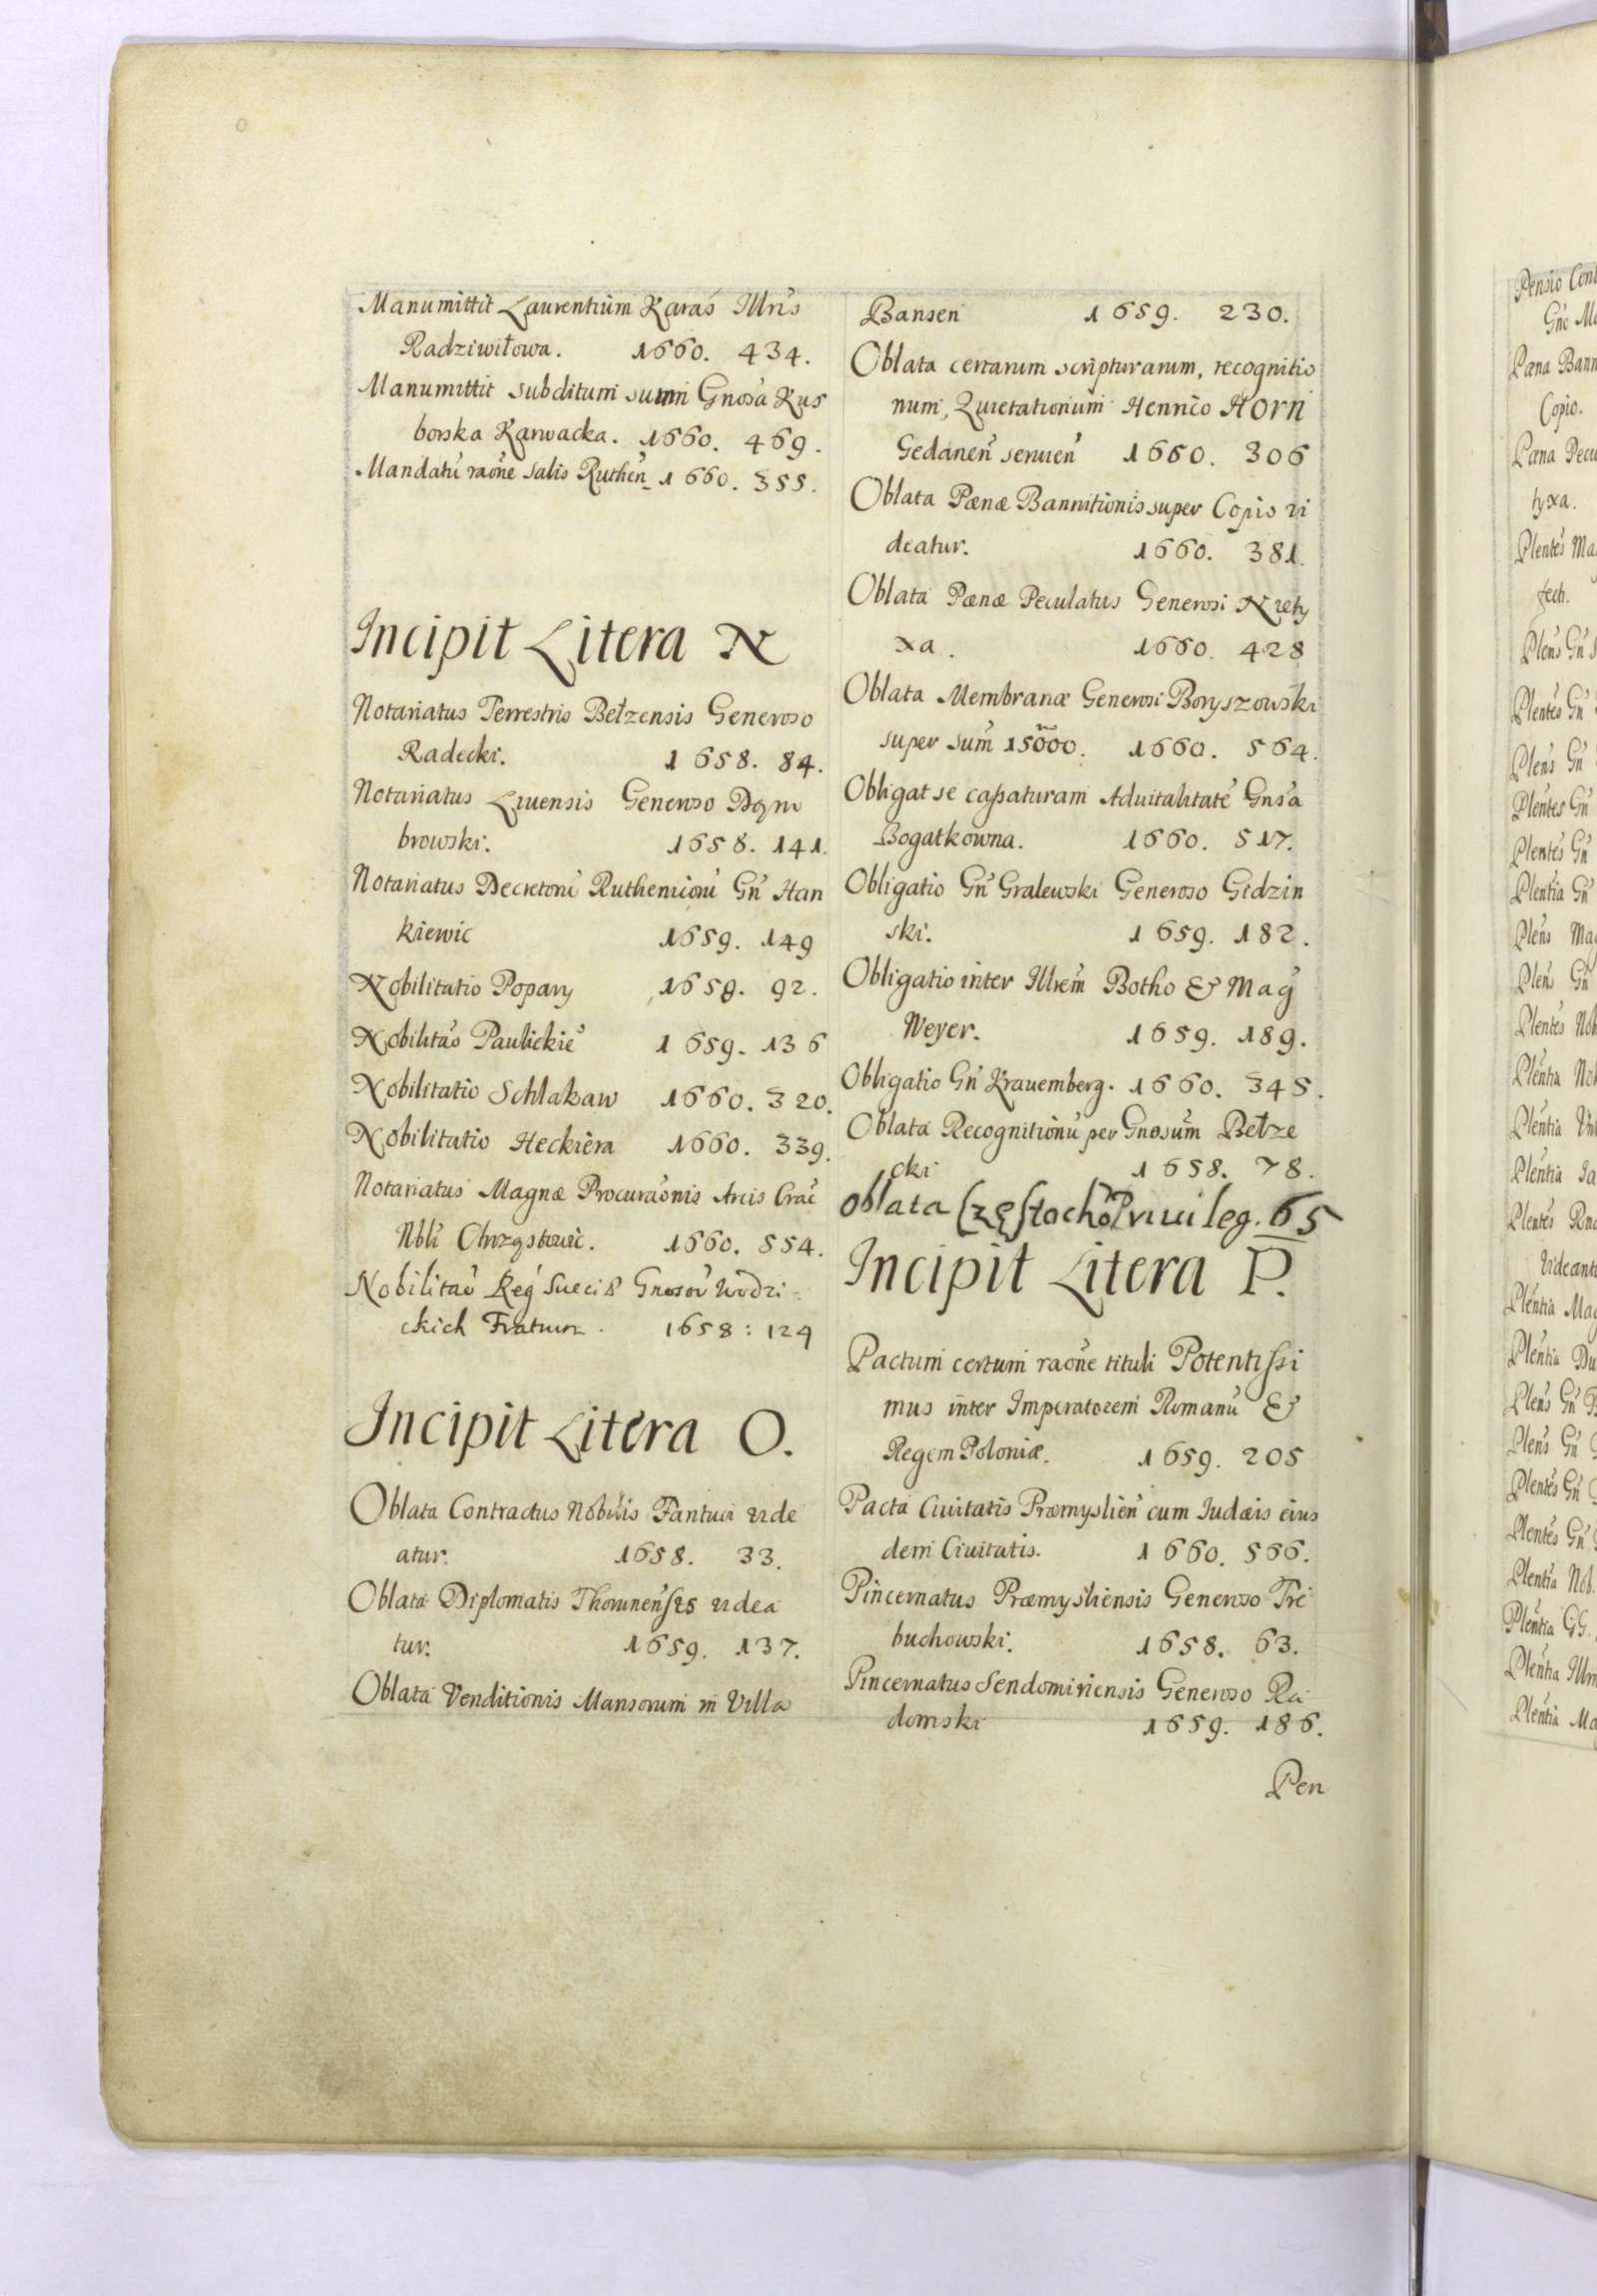 Manumittit Laurentium Karaś Illris
Radziwiłowa. 1660. 434.
Manumittit subditum suum Gnosa Kus
borska Karwacka. 1660. 469.
Mandatū raõne salis Ruthen̄ 1660. 355.
Incipit Litera N
Notariatus Terrestris Bełzensis Generoso
Radecki. 1658. 84.
Notariatus Liuensis Generoso Dąm
browski. 1658. 141.
Notariatus Decretorū Ruthenicorū Gn̄ Han
kiewic 1659. 149
Nobilitatio Popary 1659. 92.
Nobilitaõ Paulickie 1659. 136
Nobilitatio Schlakaw 1660. 320.
Nobilitatio Heckiera 1660. 339.
Notariatus Magnæ Procuraõnis Arcis Crac̄
Nbli Chrząstowic. 1660. 554.
Nobilitaõ Reg̃ Sueciæ Gnosorū Wodzi=
ckich Fratrum. 1658: 124
Incipit Litera O.
Oblata Contractus Nobilis Fantuci uide
atur. 1658. 33.
Oblata Diplomatis Thorunenses uidea
tur. 1659. 137.
Oblata Venditionis Mansorum in Villa
Bansen 1659. 230.
Oblata certarum scripturarum, recognitio
num, Quietationum Henrico Horn
Gedanen̄ seruien̄ 1660. 306
Oblata Pœnæ Bannitionis super Copio ui
deatur. 1660. 381.
Oblata Pœnæ Peculatus Generosi Niety
xa. 1660. 428
Oblata Membranæ Generosi Boryszowski
super sum̄ 15000. 1660. 564.
Obligat se cassaturam Aduitalitatē Gnsa
Bogatkowna. 1660. 517.
Obligatio Gn̄ Gralewski Generoso Gidzin
ski. 1659. 182.
Obligatio inter Illrem Botho & Mag̃
Weyer. 1659. 189.
Obligatio Gn̄ Krauemberg. 1660. 345.
Oblata Recognitionū per Gnosum Bełze
cki 1658. 78.
Oblata Częstocho Priuileg. 65
Incipit Litera P.
Pactum certum raõne tituli Potentissi
mus inter Imperatorem Romanū &
Regem Poloniæ. 1659. 205
Pacta Ciuitatis Præmyslien̄ cum Judæis eius
dem Ciuitatis. 1660. 566.
Pincernatus Præmysliensis Generoso Tre
buchowski. 1658. 63.
Pincernatus Sendomiriensis Generoso Ra
domski 1659. 186.
Pen